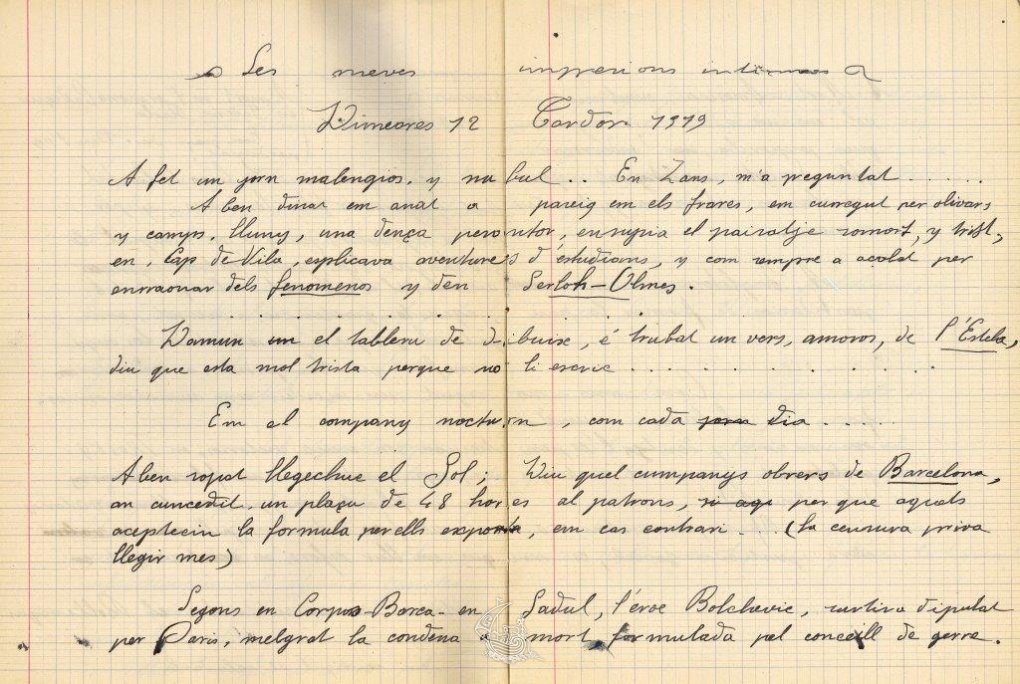 Les meves impresions intimes
Dimecres 12 Tardor 1919
A fet un jorn malengios, y nubul.. En Zans, m'a preguntat ......
A ben dinar em anat a paseig em els frares, em curregut per olivars
y camps. lluny, una dença perantor, ensupia el paisatje somort, y trist,
en, Cap de Vila, esplicava aventures d'estudians, y com sempre a acabat per
enrraonar dels fenomenos y den Serloh-Olmes.
Damun un el tableru de dibuix, é trubat un vers, amoros, de l'Estela,
diu que esta mol trista perque no li escric ..........
Em el company nocturn, com cada jorn dia .....
A ben sopat llegechue el Sol; Diu quel cumpanys obrers de Barcelona,
an cuncedit, un plaçu de 48 hores al patrons, si aqi per que aquets
aceptecin la formula per ells exposta, em cas contrari... (la censura priva
llegir mes)
Segons en Corpus-Barca- en Sadul, l'éroe Bolchevic, surtira diputat
per Paris, melgrat la condena a mort formulada pel concell de gerra.